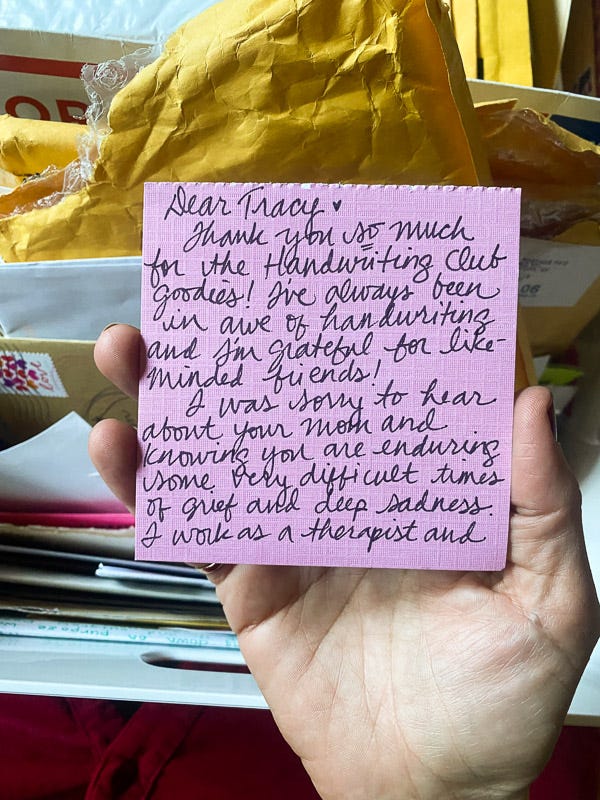 Dear Tracy ♥
Thank you so much
for the Handwriting Club
goodies! I've always been
in awe of handwriting
and I'm grateful for like-
minded friends!
I was sorry to hear
about your mom and
knowing you are enduring
some very difficult times
of grief and deep sadness.
I work as a therapist and